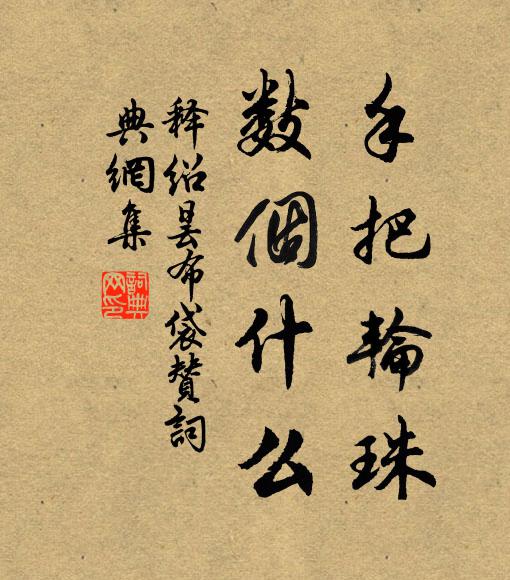 手把輪珠
數個什么
释紹曇布袋贊詞
典網集
詞典网印